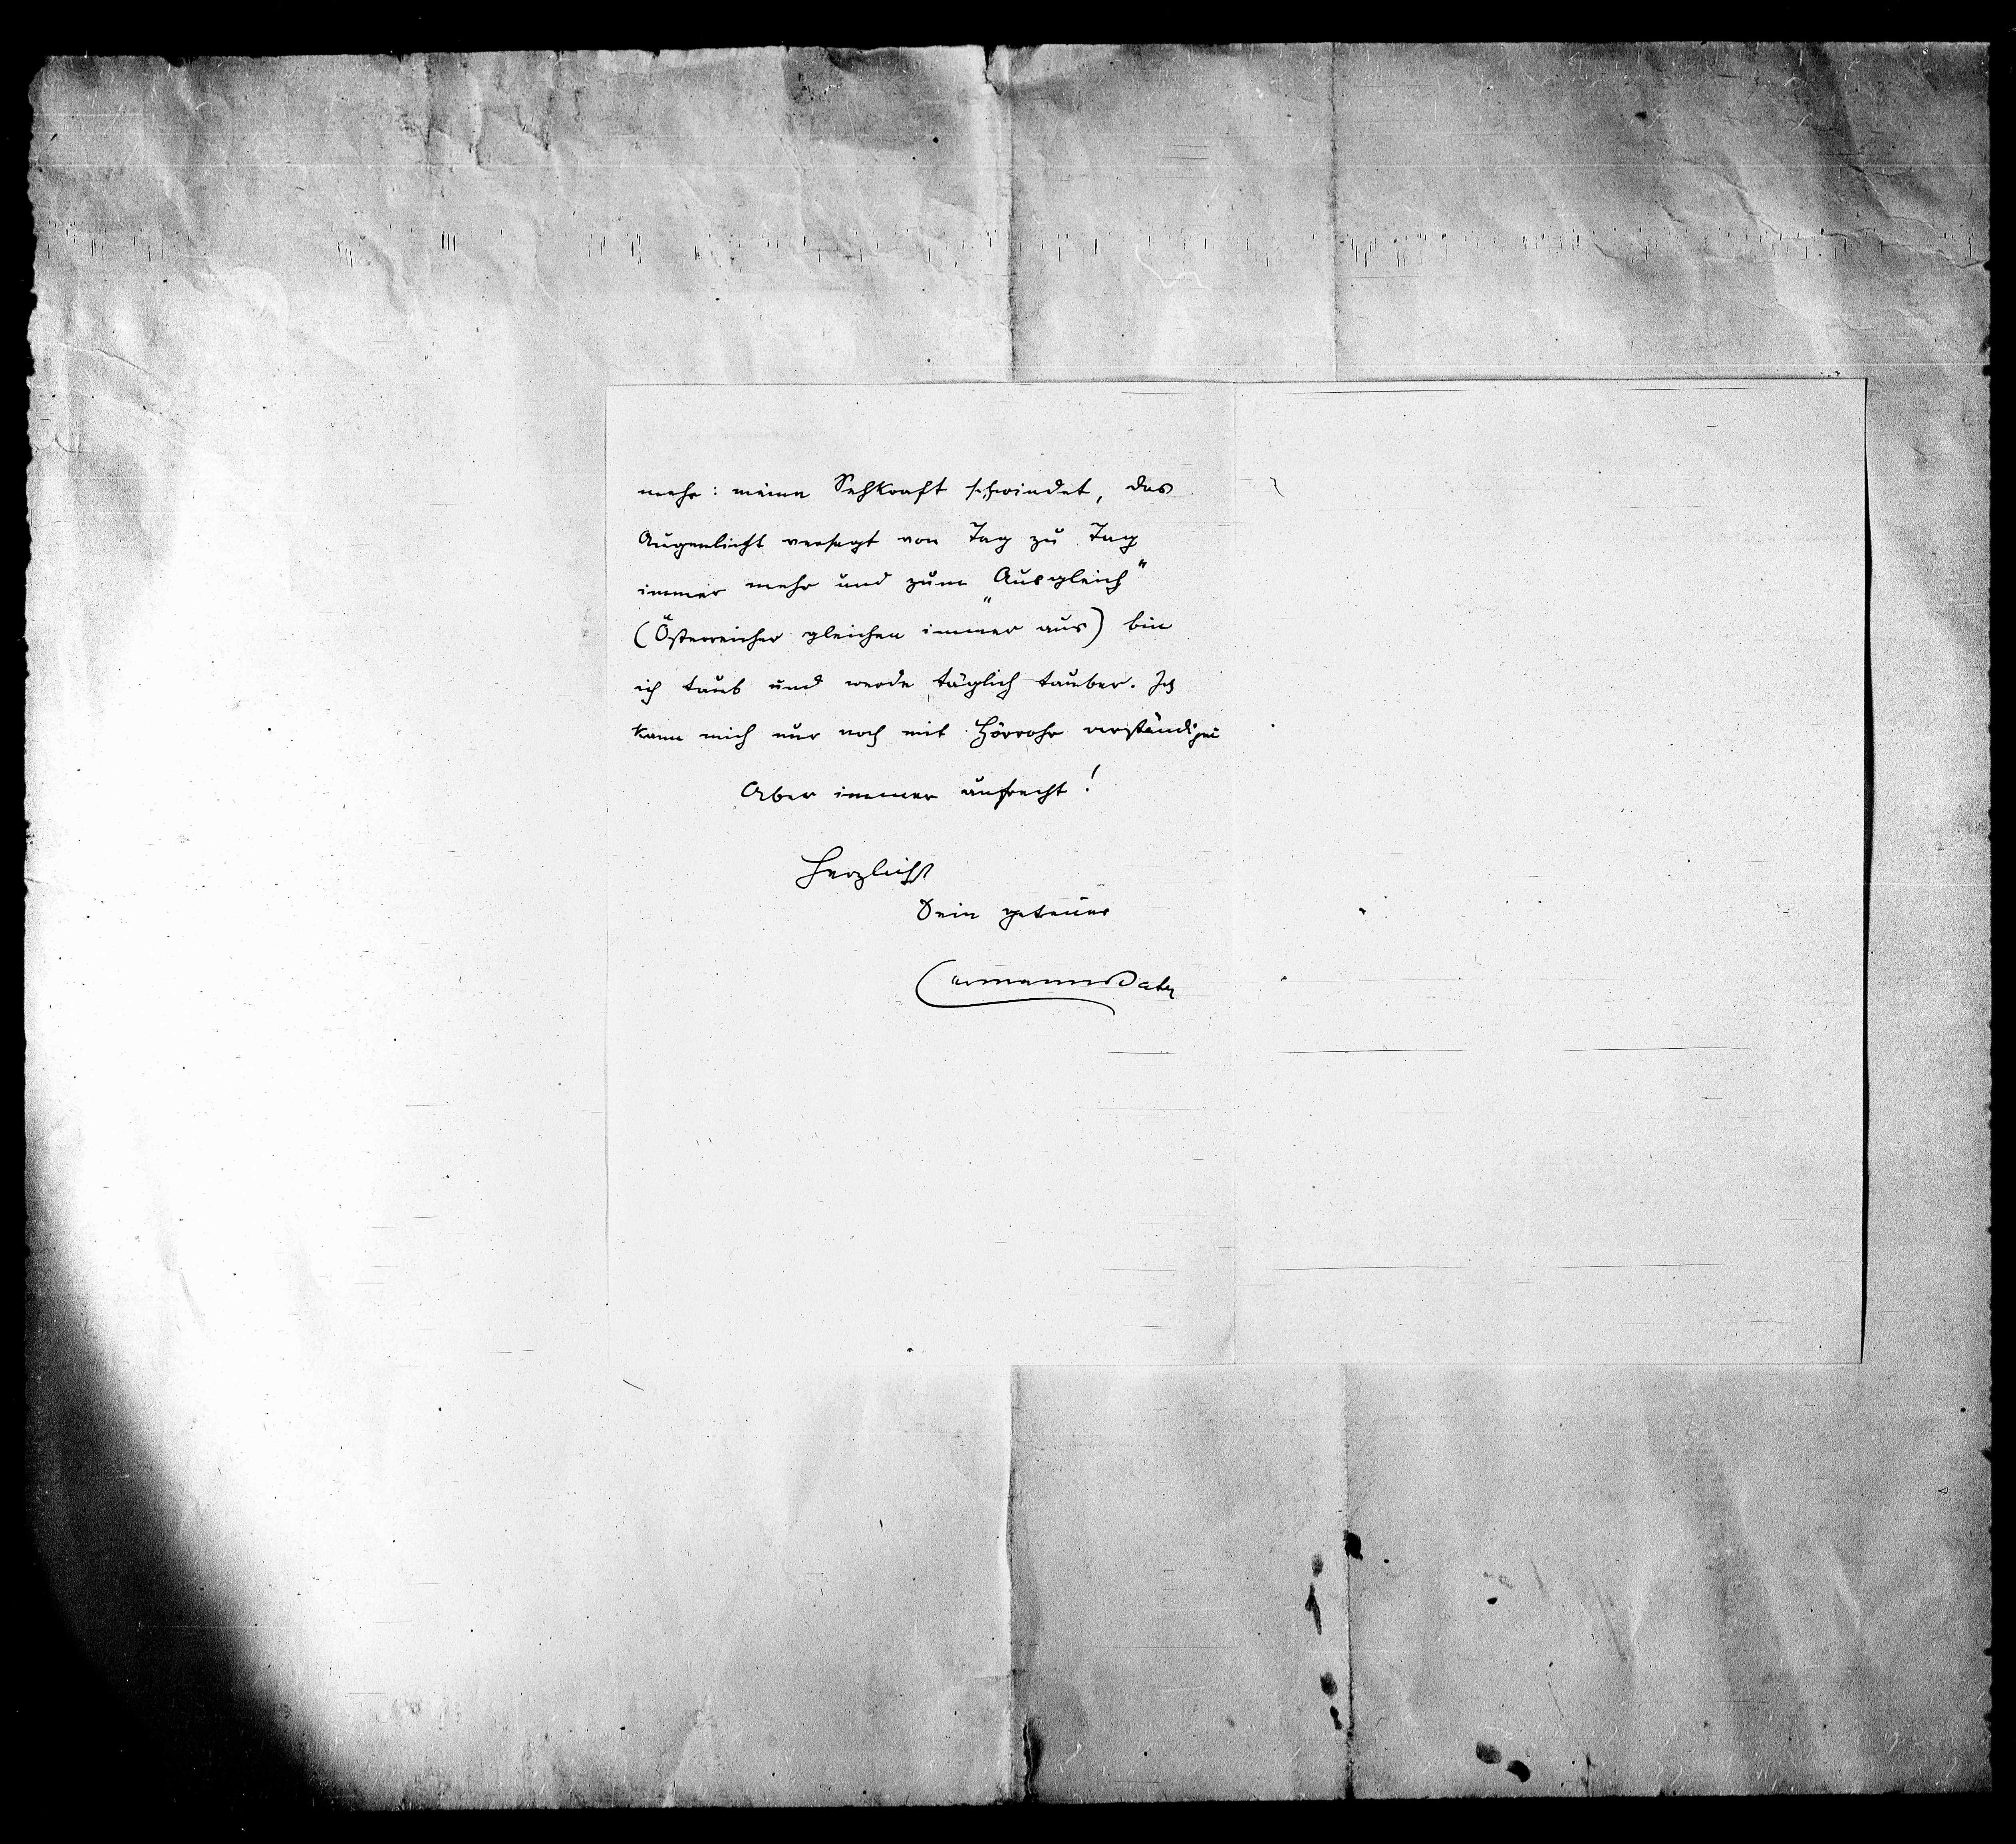 mehr: meine Sehkraft schwindet, das
Augenlicht versagt von Tag zu Tag
immer mehr und zum „Ausgleich"
(Österreicher gleichen immer aus) bin
ich taub und werde täglich tauber. Ich
kann mich nur noch mit Hörrohr verständigen
Aber immer aufrecht!
Herzlichst
Dein getreuer
HermannBahr